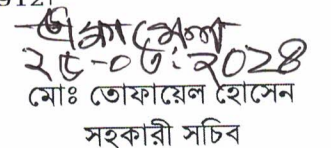 ২৫-০৬-২০২৪
মোঃ তোফায়েল হোসেন
সহকারী সচিব